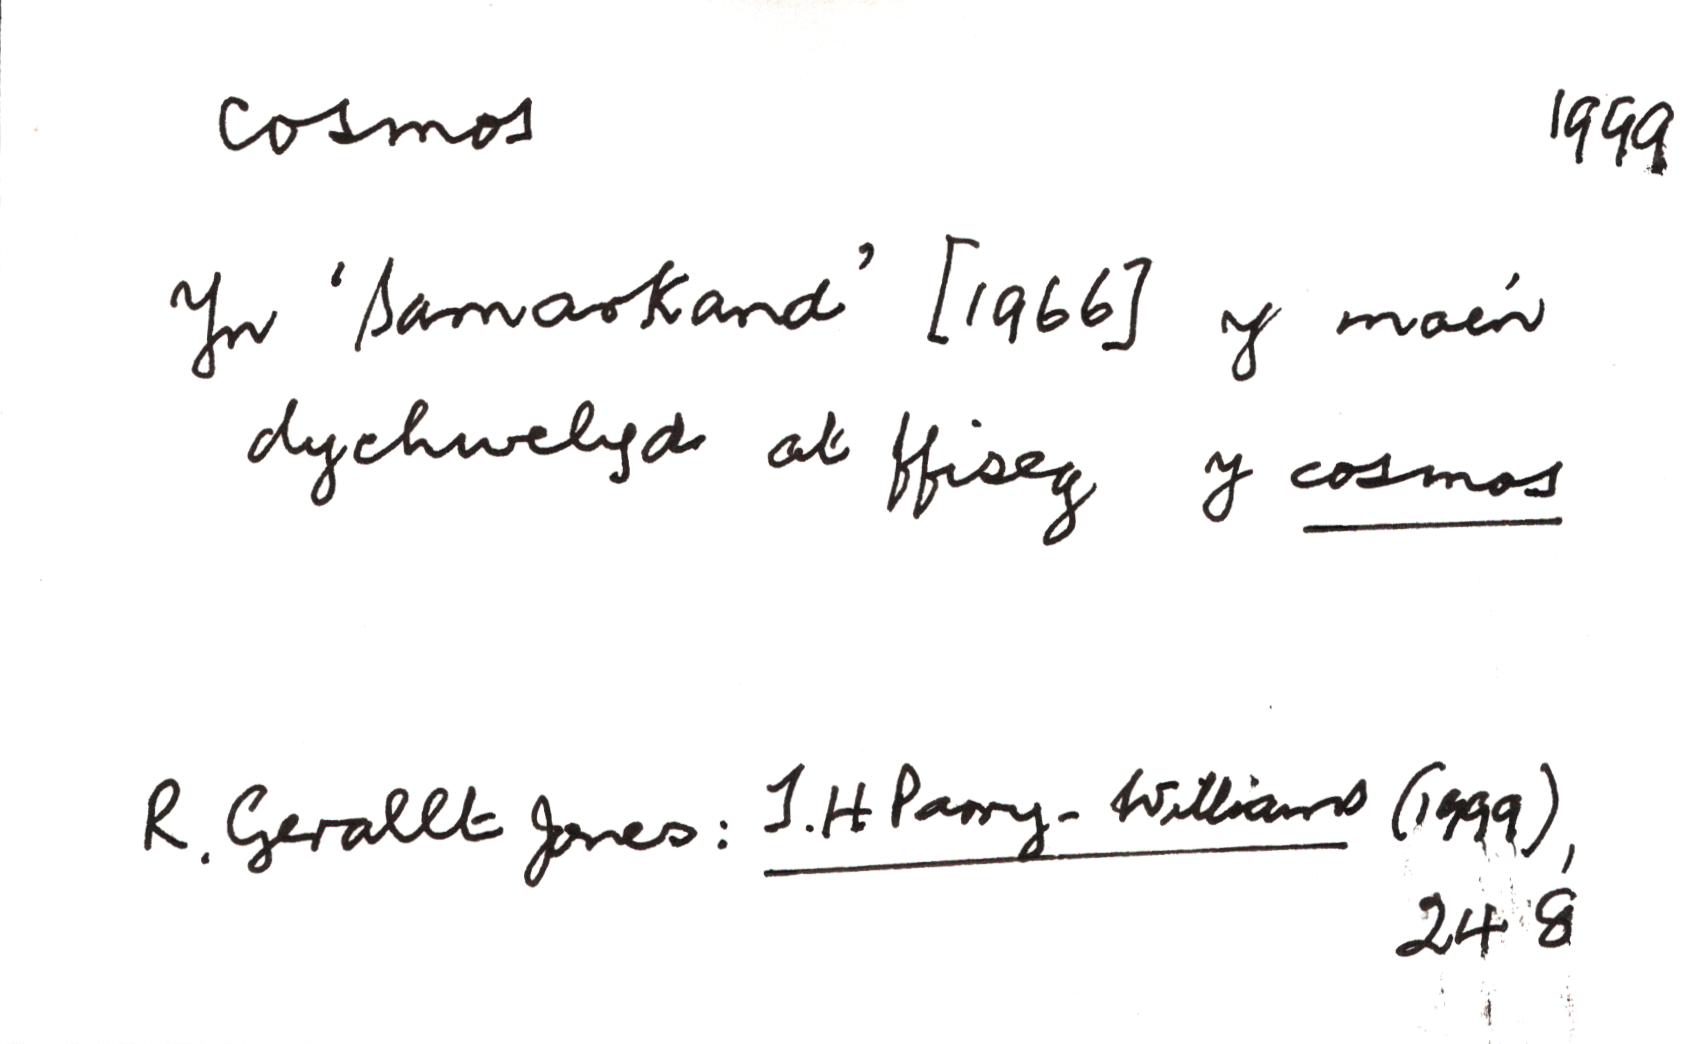 Cosmos 1999
Yn 'Samarkand' [1966] y mae'n
dychwelyd at ffiseg y cosmos
R. Gerallt Jones: T.H Parry-Williams (1999),
248